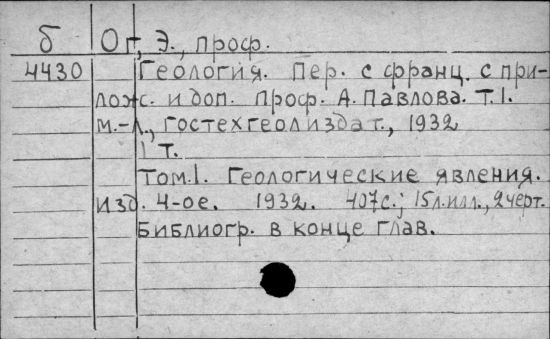 б Ог, Э., проф.
4430 Геология. Пер. с франц. с при-
лож. и доп. проф. А. Павлова. Т.1.
м.-л., гостехгеолиздат., 1932
1 т.
Том.1. Геологические явления.
изд. 4-ое. 1932. 407с.; 15л.илл., 2черт.
Библиогр. в конце глав.